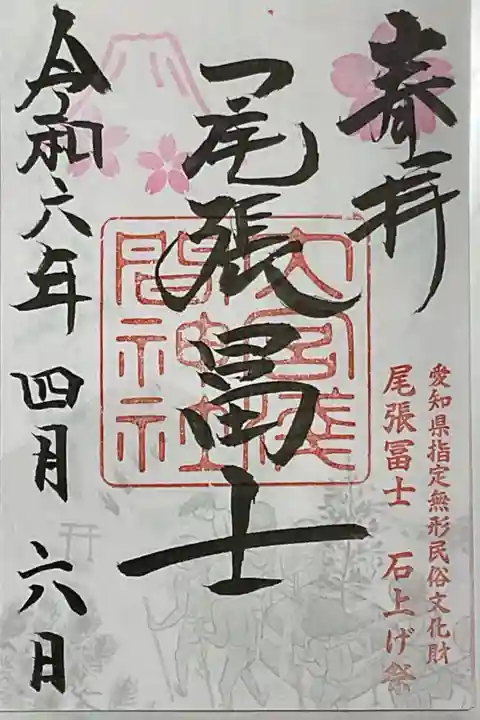 奉拝
愛知県指定無形民俗文化財
尾張冨士 石上げ祭
尾張冨士
大宮浅間神社
令和六年四月六日